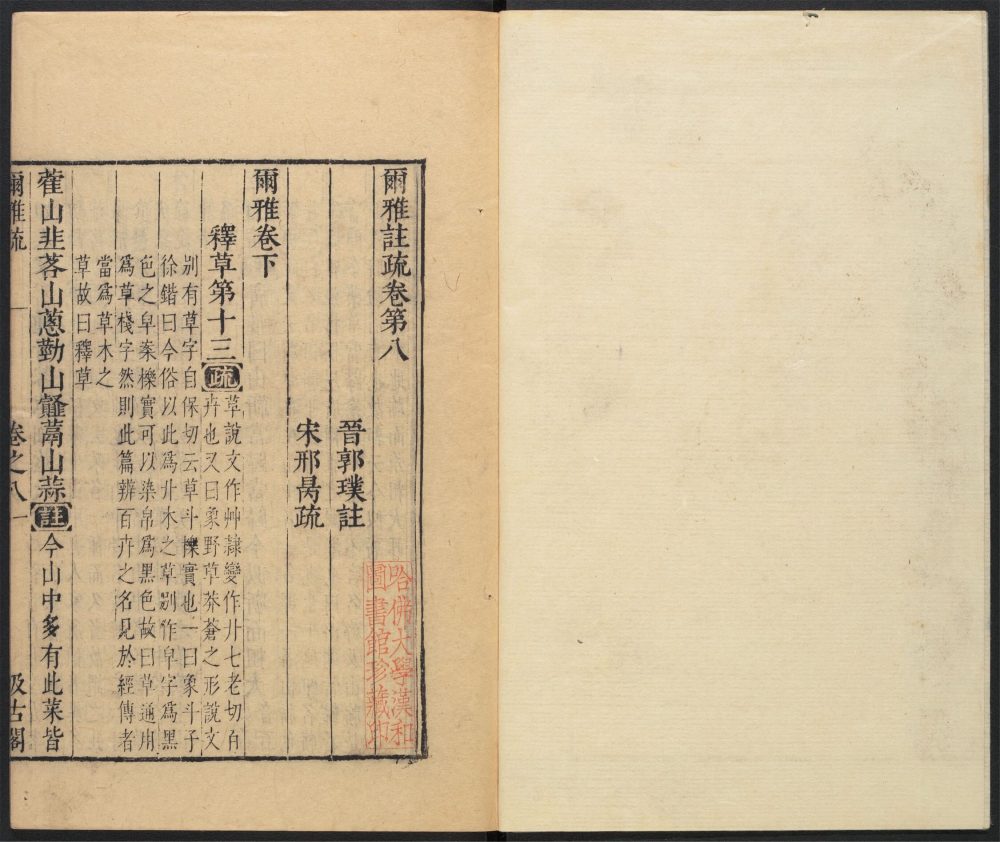 爾雅註疏卷第八
晉郭璞註
宋邢昺疏
哈佛大學漢和
圖書館珍藏印
爾雅卷下
釋草第十三疏
草說文作艸隷變作廾七老切百
卉也又曰象野草莽蒼之形說文
別有草字自保切云草斗櫟實也一曰象斗子
徐鍇曰今俗以此為廾木之草別作皁字為黑
色之皁桼櫟實可以染帛為黑色故曰草通用
為草棧字然則此篇辨百卉之名見於經傳者
當為草木之
草故曰釋草
藿山韭茖山蔥勤山䪥蒚山蒜註今山中多有此菜皆
爾雅疏 卷之八 一 汲古閣